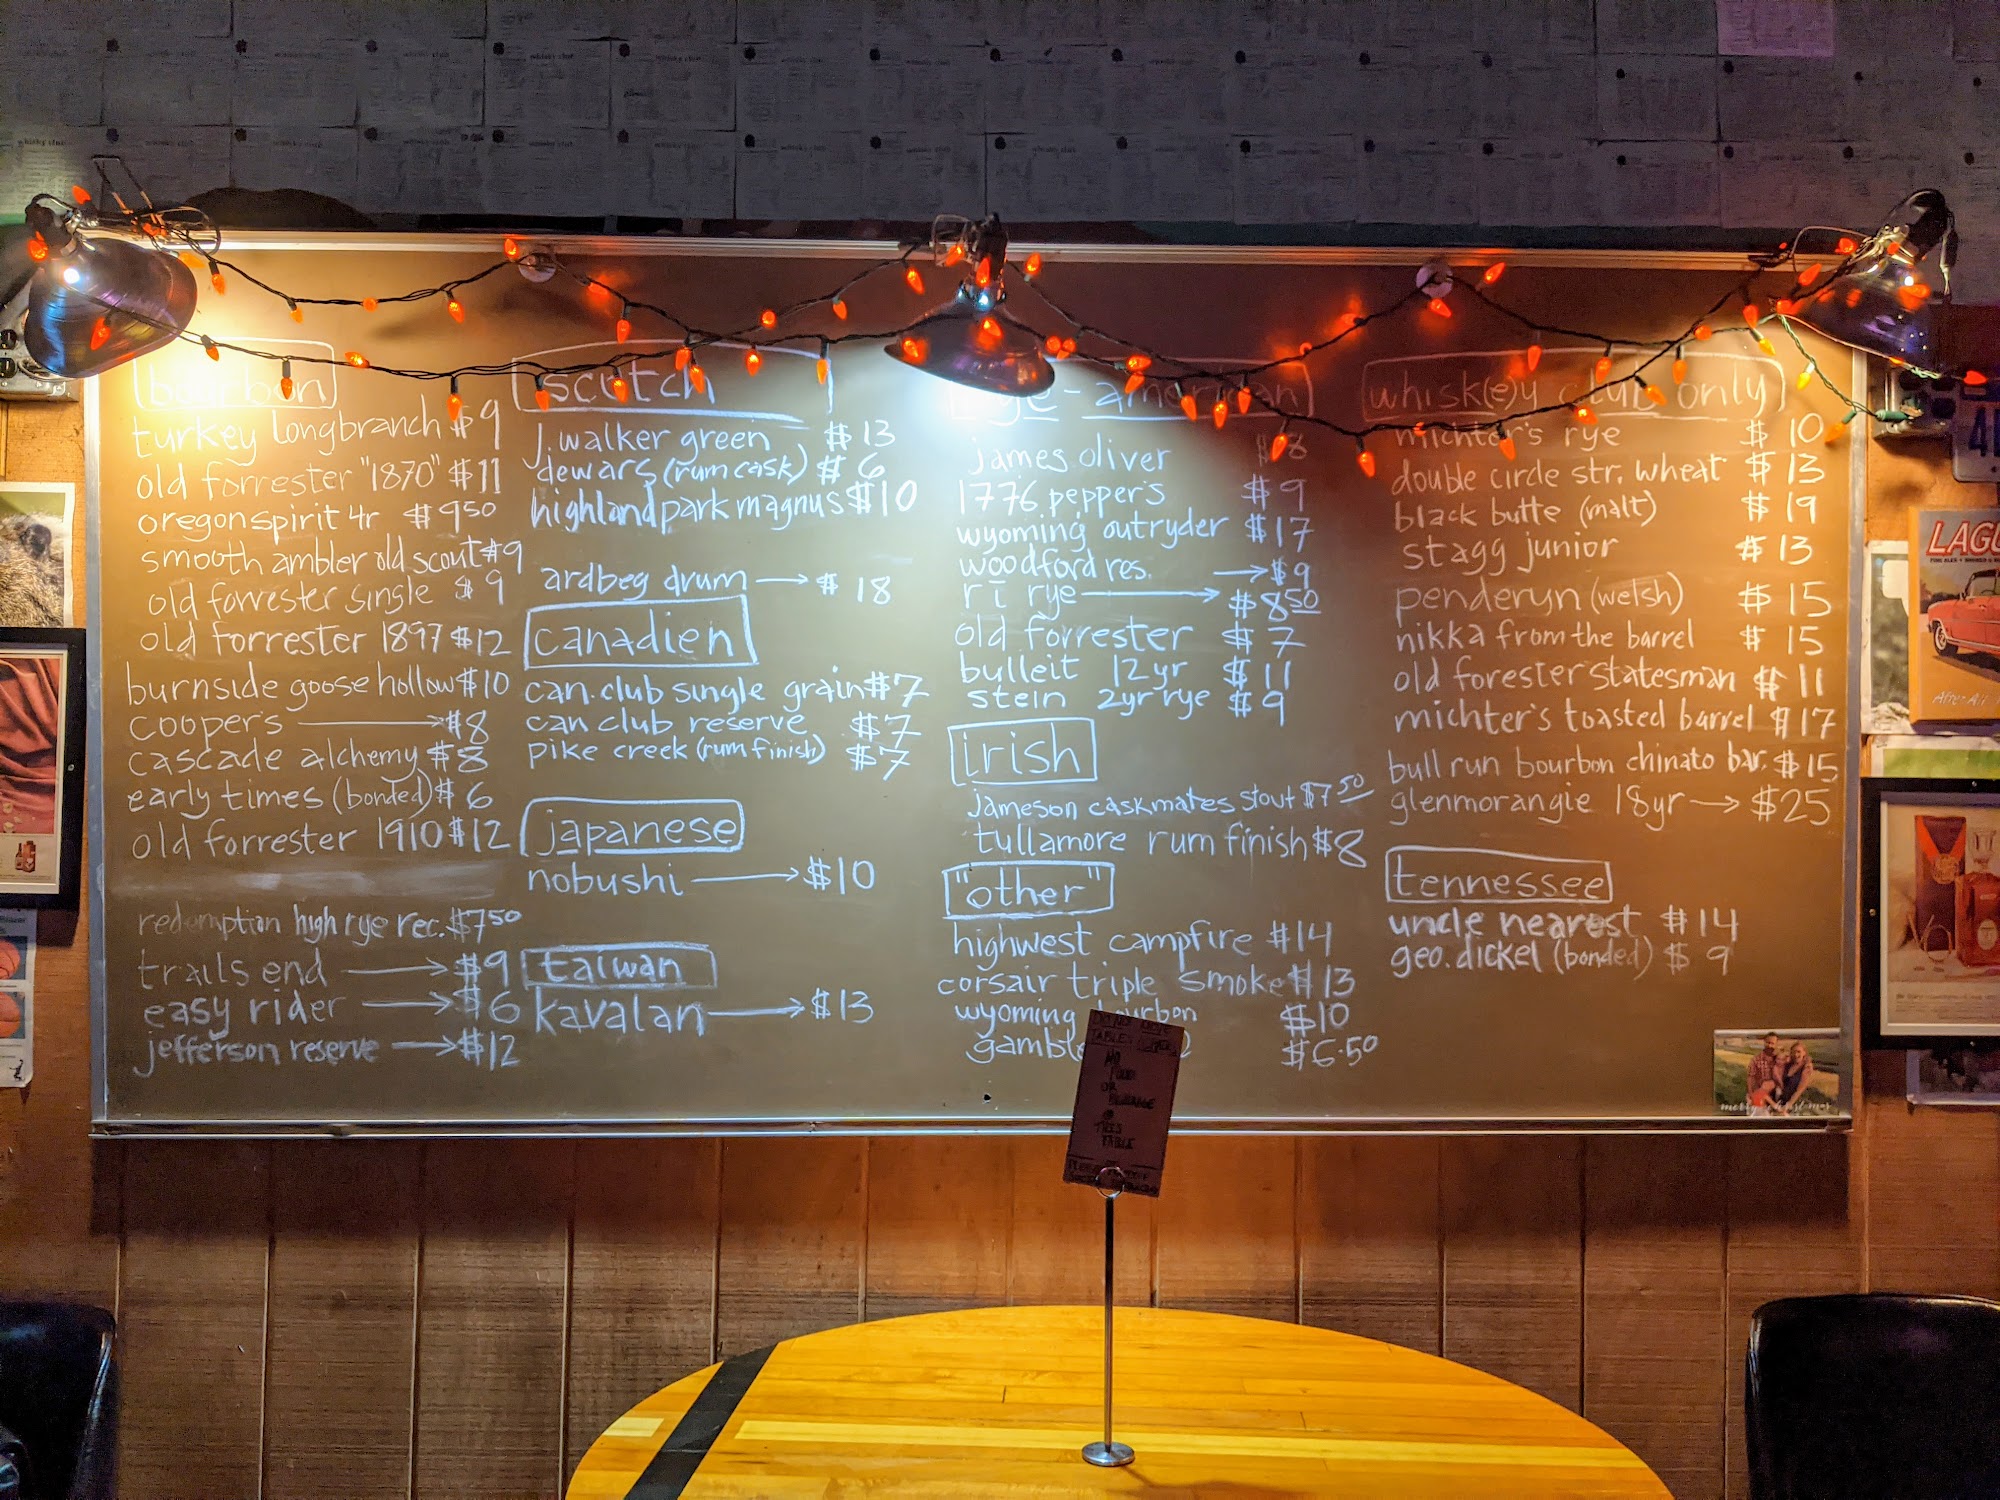 bourbon
turkey longbranch $9
old forrester "1870" $11
oregon spirit 4r $9 50
smooth ambler old scout $9
old forrester single $9
old forrester 1897 $12
burnside goose hollow $10
coopers → $8
cascade alchemy $8
early times (bonded) $6
old forrester 1910 $12
redemption high rye rec. $7 50
trails end → $9
easy rider → $6
jefferson reserve → $12
scotch
j. walker green $13
dewars (rum cask) $6
highland park magnus $10
ardbeg drum → $18
canadien
can. club single grain $7
can club reserve $7
pike creek (rum finish) $7
japanese
nobushi → $10
taiwan
kavalan → $13
rye - american
james oliver $8
1776 pepper's $9
wyoming outryder $17
woodford res. → $9
rī rye → $8 50
old forrester $7
bulleit 12 yr $11
stein 2yr rye $9
irish
jameson caskmates stout $7 50
tullamore rum finish $8
"other"
highwest campfire $14
corsair triple smoke $13
wyoming bourbon $10
$6.50
whisk(e)y club only
michter's rye $10
double circle str. wheat $13
black butte (malt) $19
stagg junior $13
penderyn (welsh) $15
nikka from the barrel $15
old forester statesman $11
michter's toasted barrel $17
bull run bourbon chinato bar. $15
glenmorangie 18yr → $25
tennessee
uncle nearest $14
geo. dickel (bonded) $9
merry christmas
NO
FOOD
OR
BEVERAGE
@
THIS
TABLE
LAGU